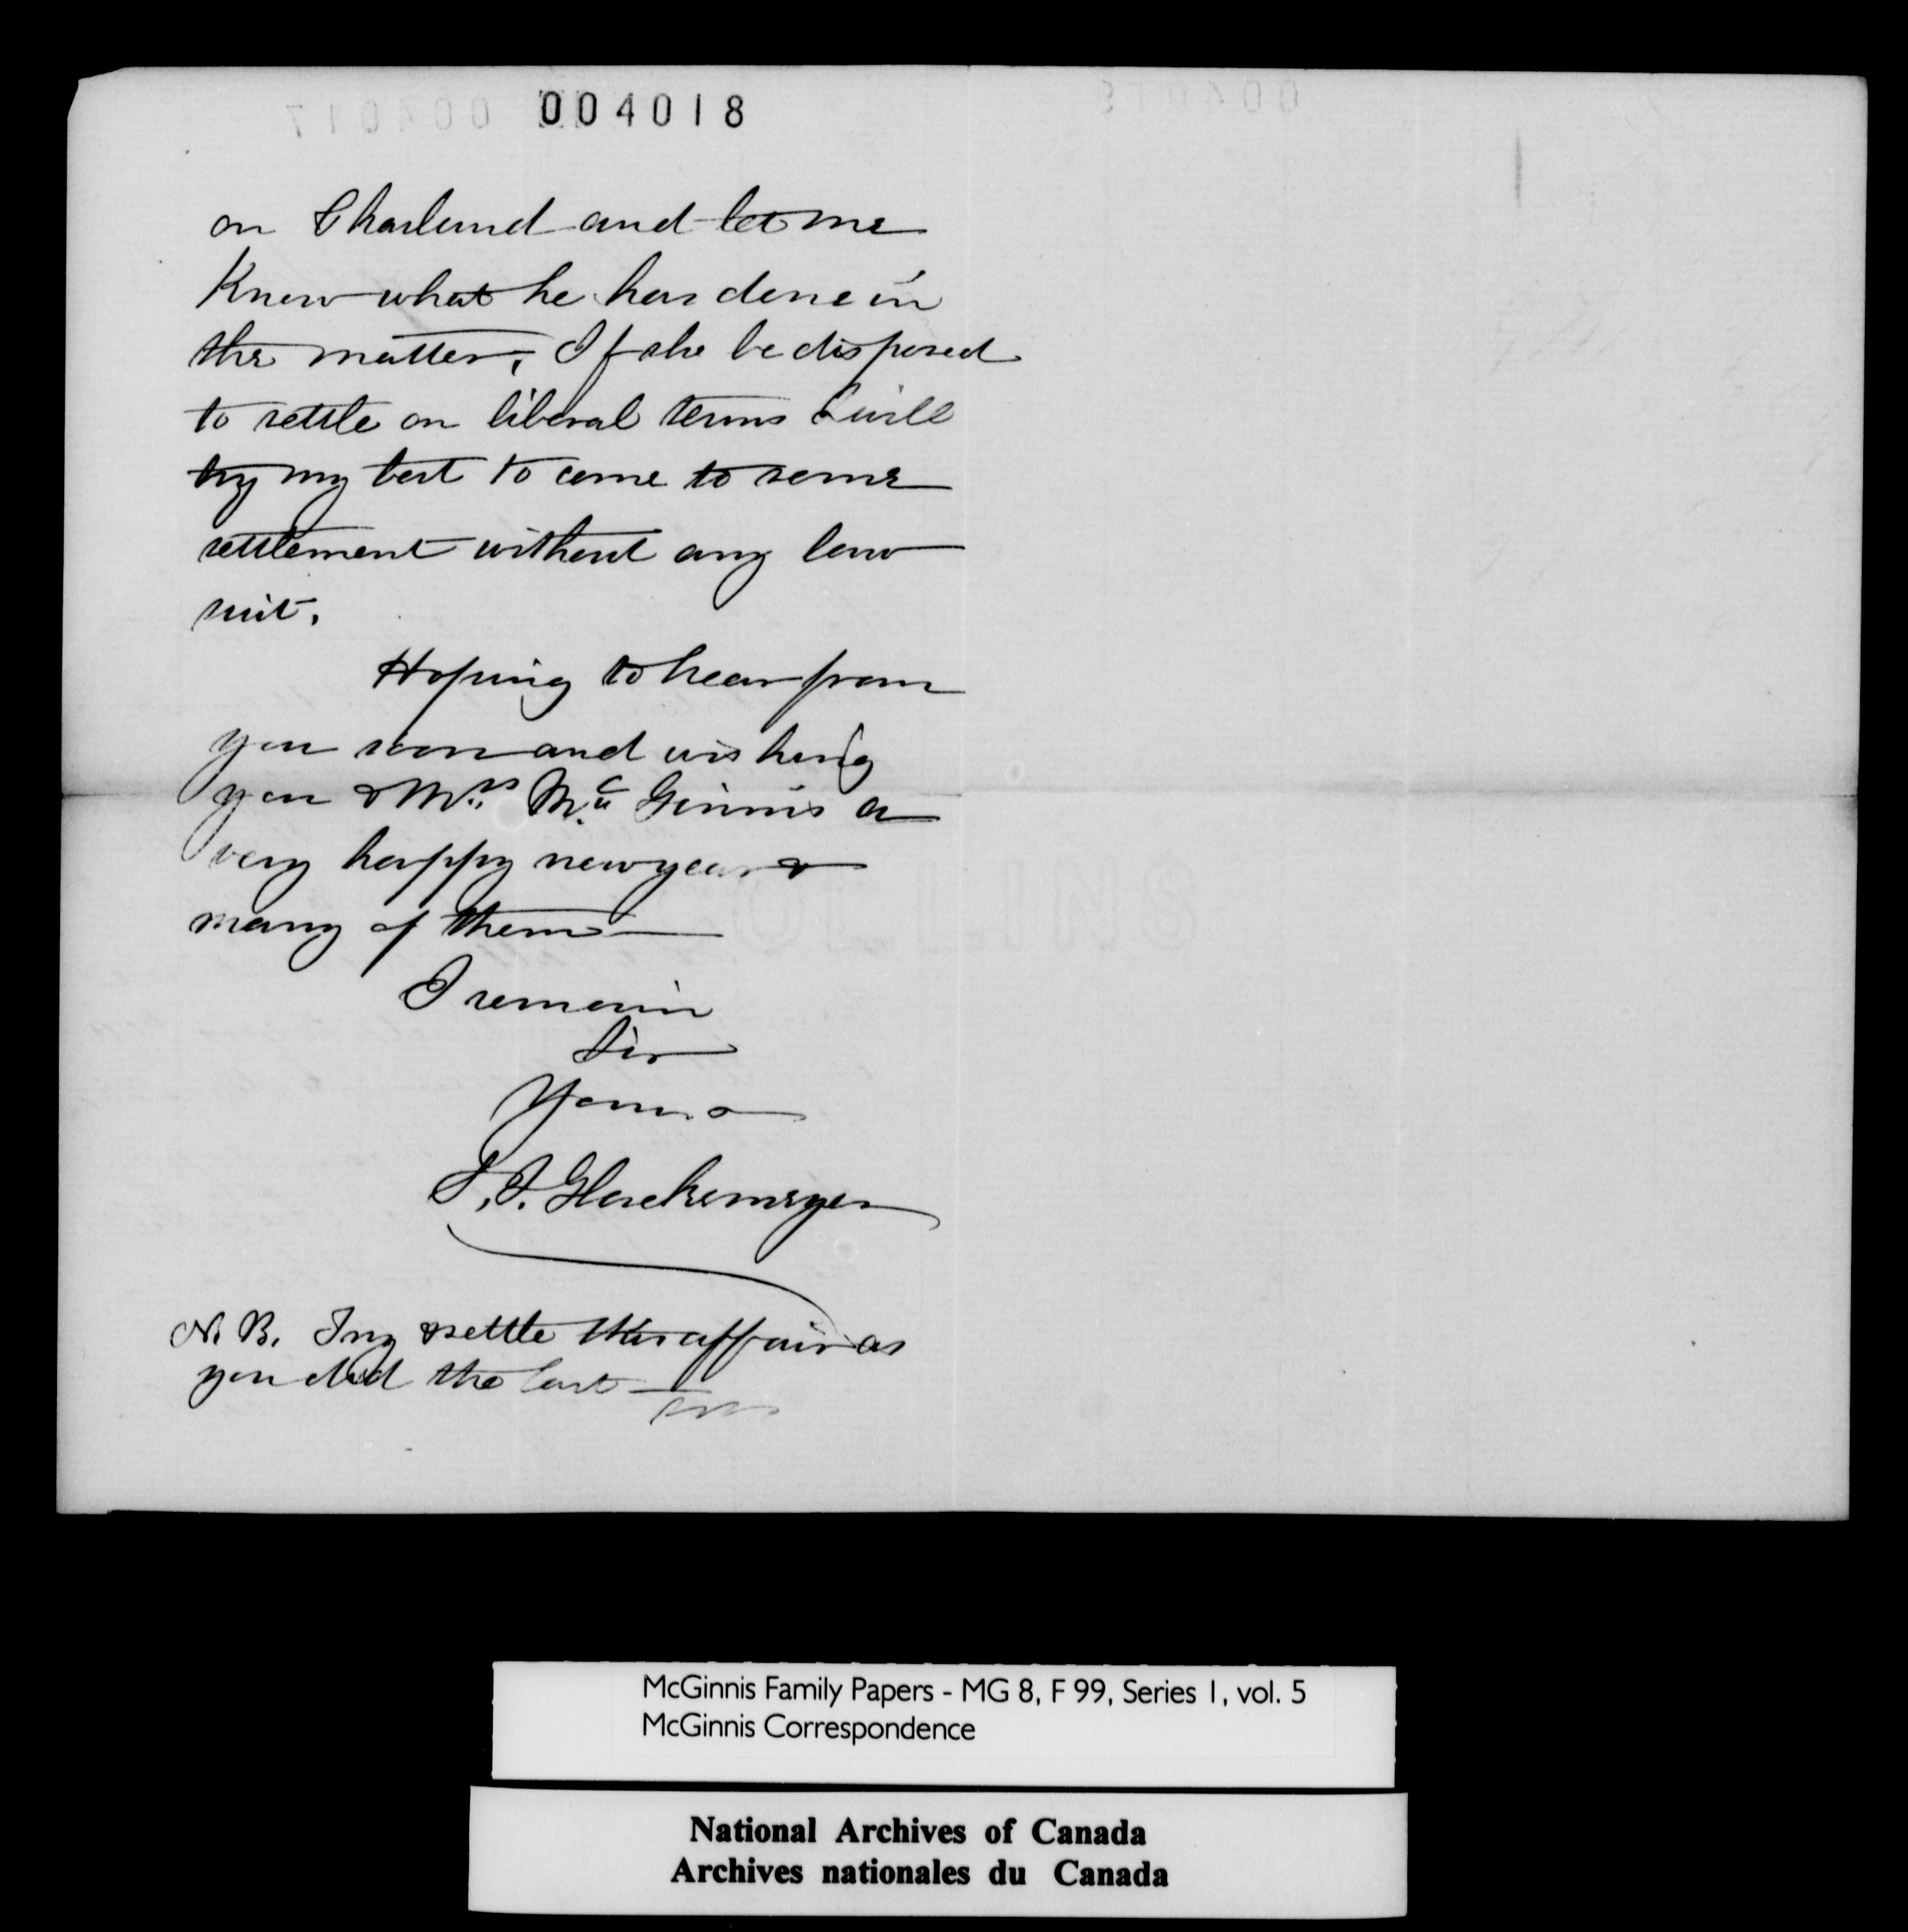 004018
on Charland and let me
Know what he has done in
the matter, If she be disposed
to settle on liberal terms I will
try my best to come to some
settlement without any law
suit.
Hoping to hear from
you soon and wishing
you & Mrs. Mc Ginnis a
very happy new year &
many of them
I remain
Sir
Yours
Glackemeyer
N.B. Try & settle this affair as
you did the last
McGinnis Family Papers - MG 8, F 99, Series 1, vol. 5
McGinnis Correspondence
National Archives of Canada
Archives nationales du Canada